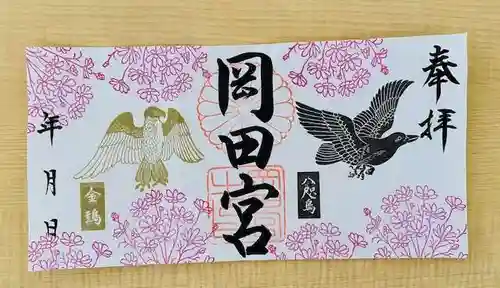 奉拝
八咫烏
岡田宮
金鵄
年月日